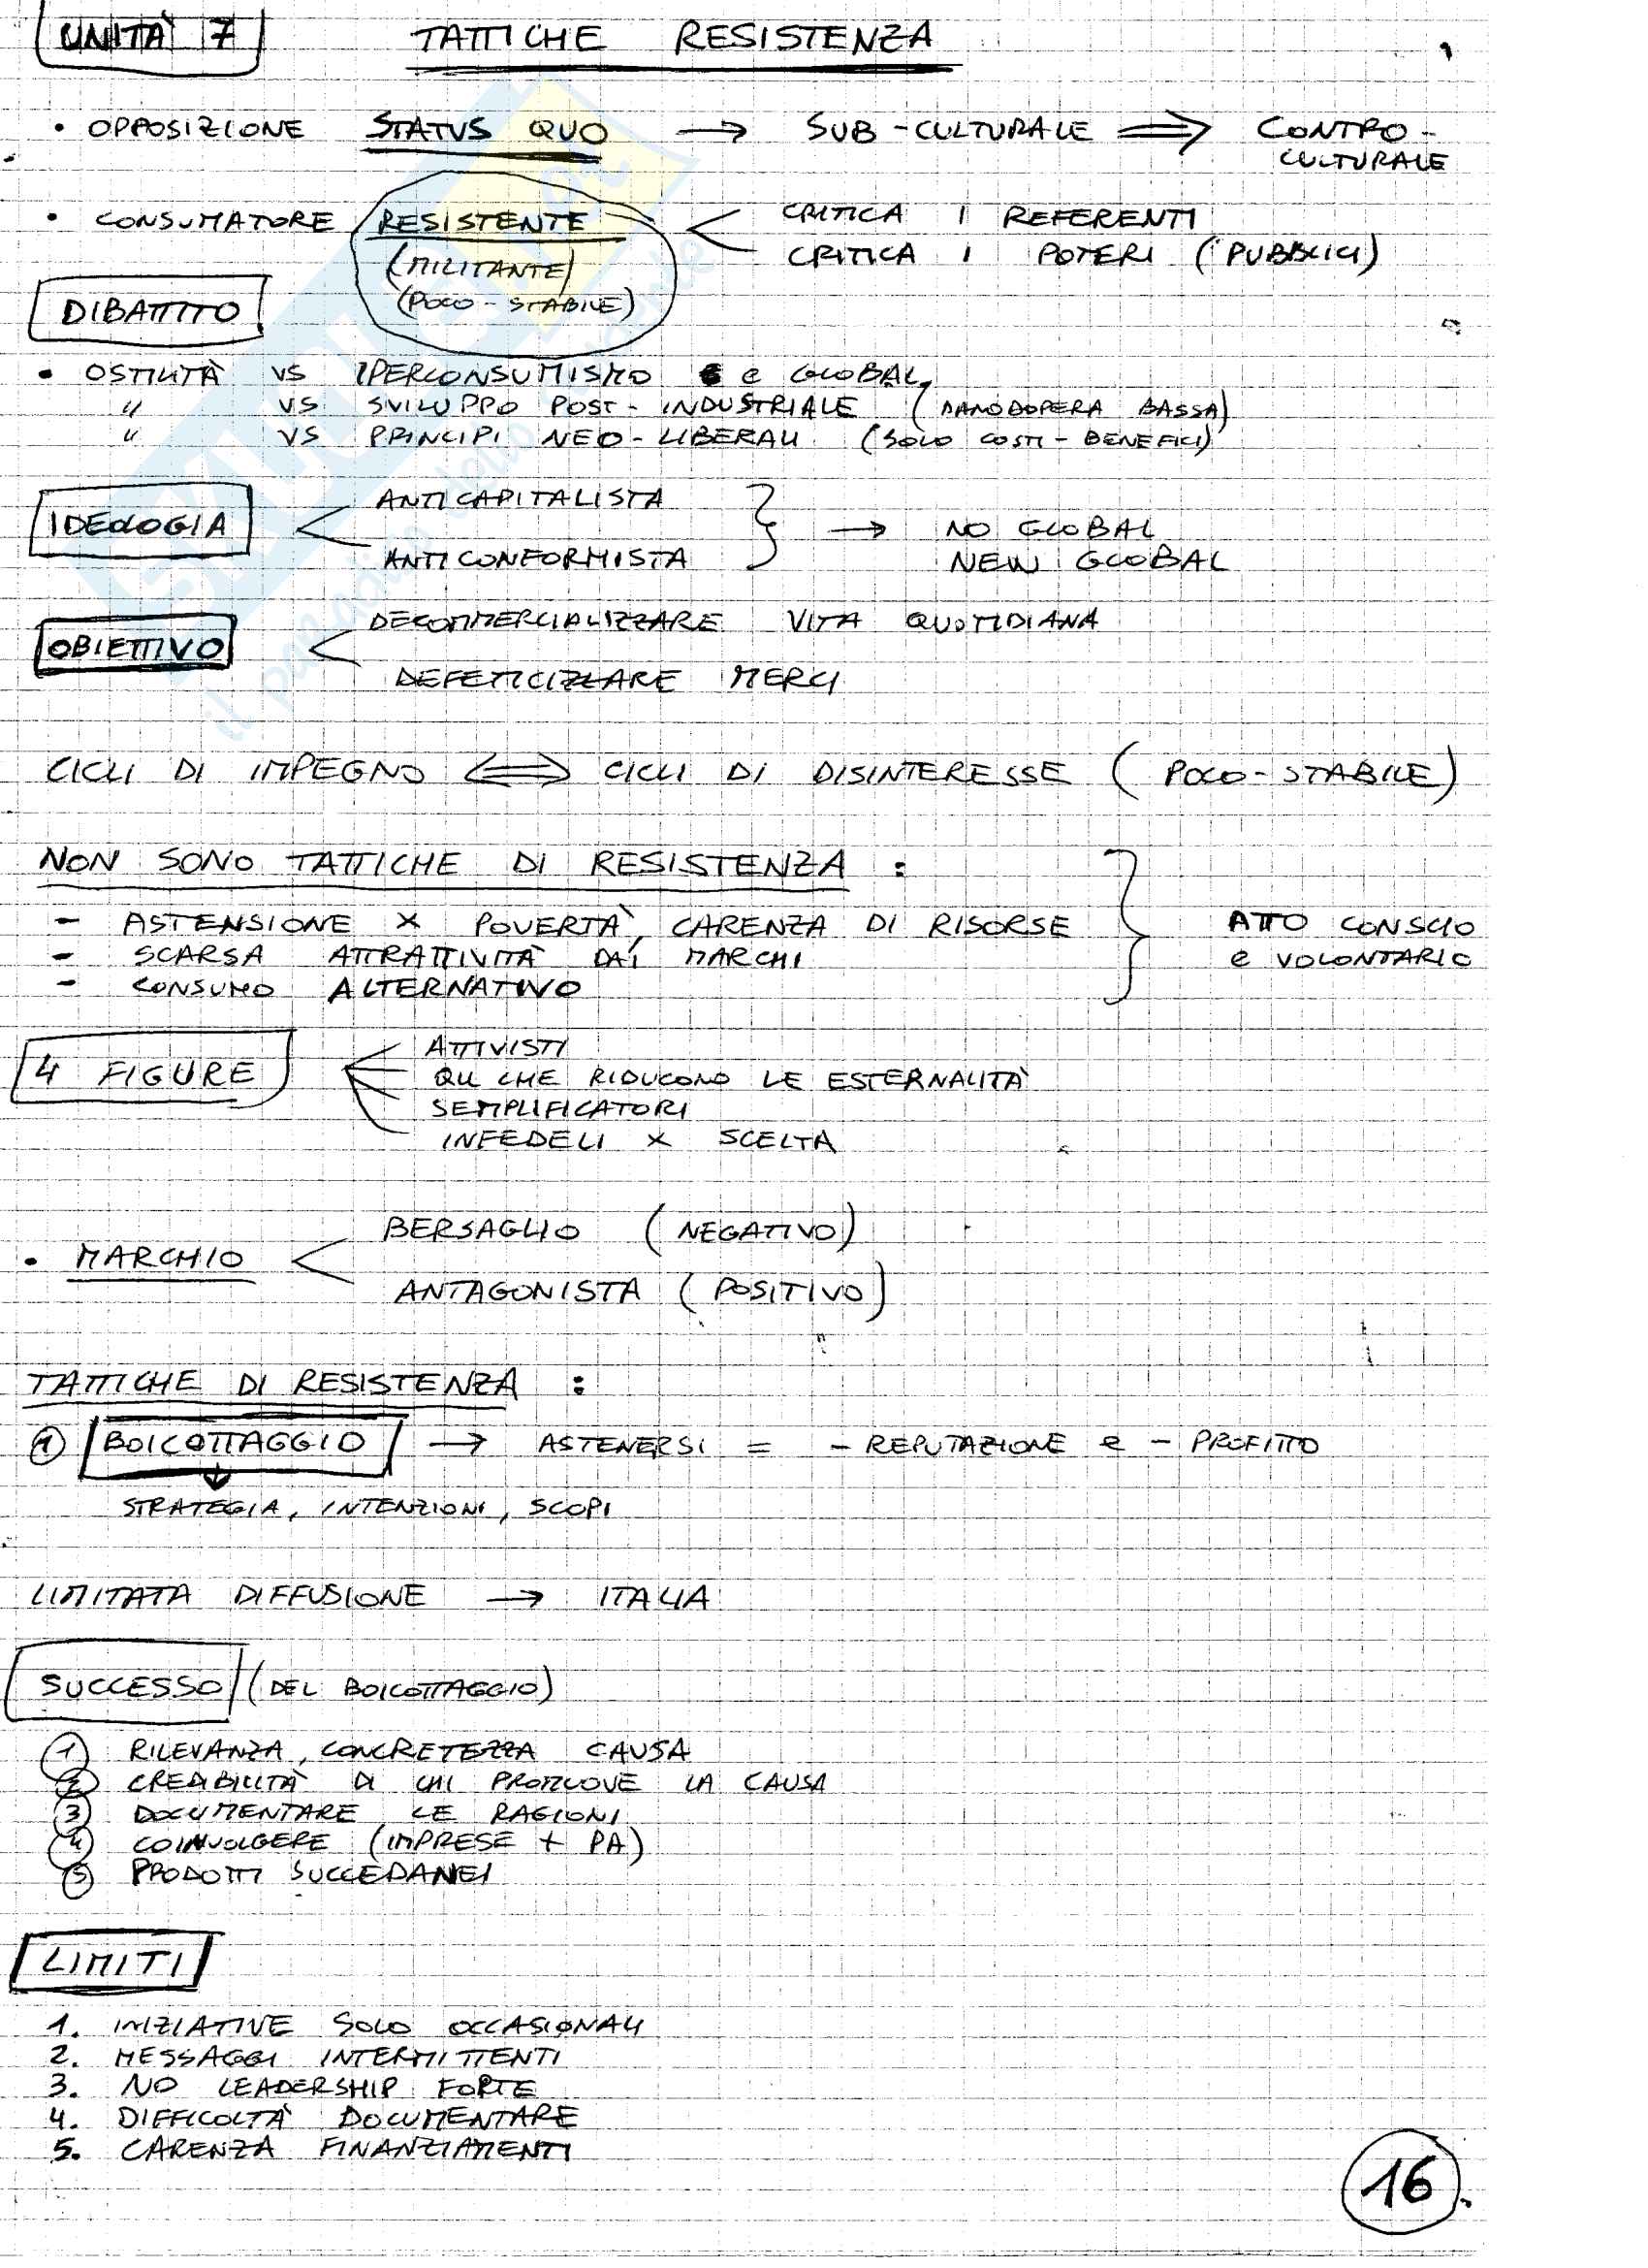 UNITÀ 7 TATTICHE RESISTENZA
• OPPOSIZIONE STATUS QUO → SUB-CULTURALE ⇒ CONTRO-
CULTURALE
• CONSUMATORE RESISTENTE < CRITICA I REFERENTI
(MILITANTE) CRITICA I POTERI (PUBBLICI)
(POCO-STABILE)
DIBATTITO
• OSTILITÀ VS IPERCONSUMISMO e GLOBAL.
" VS SVILUPPO POST-INDUSTRIALE (MANODOPERA BASSA)
" VS PRINCIPI NEO-LIBERALI (SOLO COSTI-BENEFICI)
IDEOLOGIA < ANTICAPITALISTA
ANTICONFORMISTA } → NO GLOBAL
NEW GLOBAL
OBIETTIVO < DECOMMERCIALIZZARE VITA QUOTIDIANA
DEFETICIZZARE MERCI
CICLI DI IMPEGNO ⇔ CICLI DI DISINTERESSE (POCO-STABILE)
NON SONO TATTICHE DI RESISTENZA :
- ASTENSIONE X POVERTÀ, CARENZA DI RISORSE } ATTO CONSCIO
- SCARSA ATTRATTIVITÀ DAI MARCHI e VOLONTARIO
- CONSUMO ALTERNATIVO
4 FIGURE < ATTIVISTI
QLI CHE RIDUCONO LE ESTERNALITÀ
SEMPLIFICATORI
INFEDELI X SCELTA
• MARCHIO < BERSAGLIO (NEGATIVO)
ANTAGONISTA (POSITIVO)
TATTICHE DI RESISTENZA :
1 BOICOTTAGGIO → ASTENERSI = - REPUTAZIONE e - PROFITTO
↓
STRATEGIA, INTENZIONI, SCOPI
LIMITATA DIFFUSIONE → ITALIA
SUCCESSO (DEL BOICOTTAGGIO)
1 RILEVANZA, CONCRETEZZA CAUSA
2 CREDIBILITÀ DI CHI PROMUOVE LA CAUSA
3 DOCUMENTARE LE RAGIONI
4 COINVOLGERE (IMPRESE + PA)
5 PRODOTTI SUCCEDANEI
LIMITI
1. INIZIATIVE SOLO OCCASIONALI
2. MESSAGGI INTERMITTENTI
3. NO LEADERSHIP FORTE
4. DIFFICOLTÀ DOCUMENTARE
5. CARENZA FINANZIAMENTI
16.